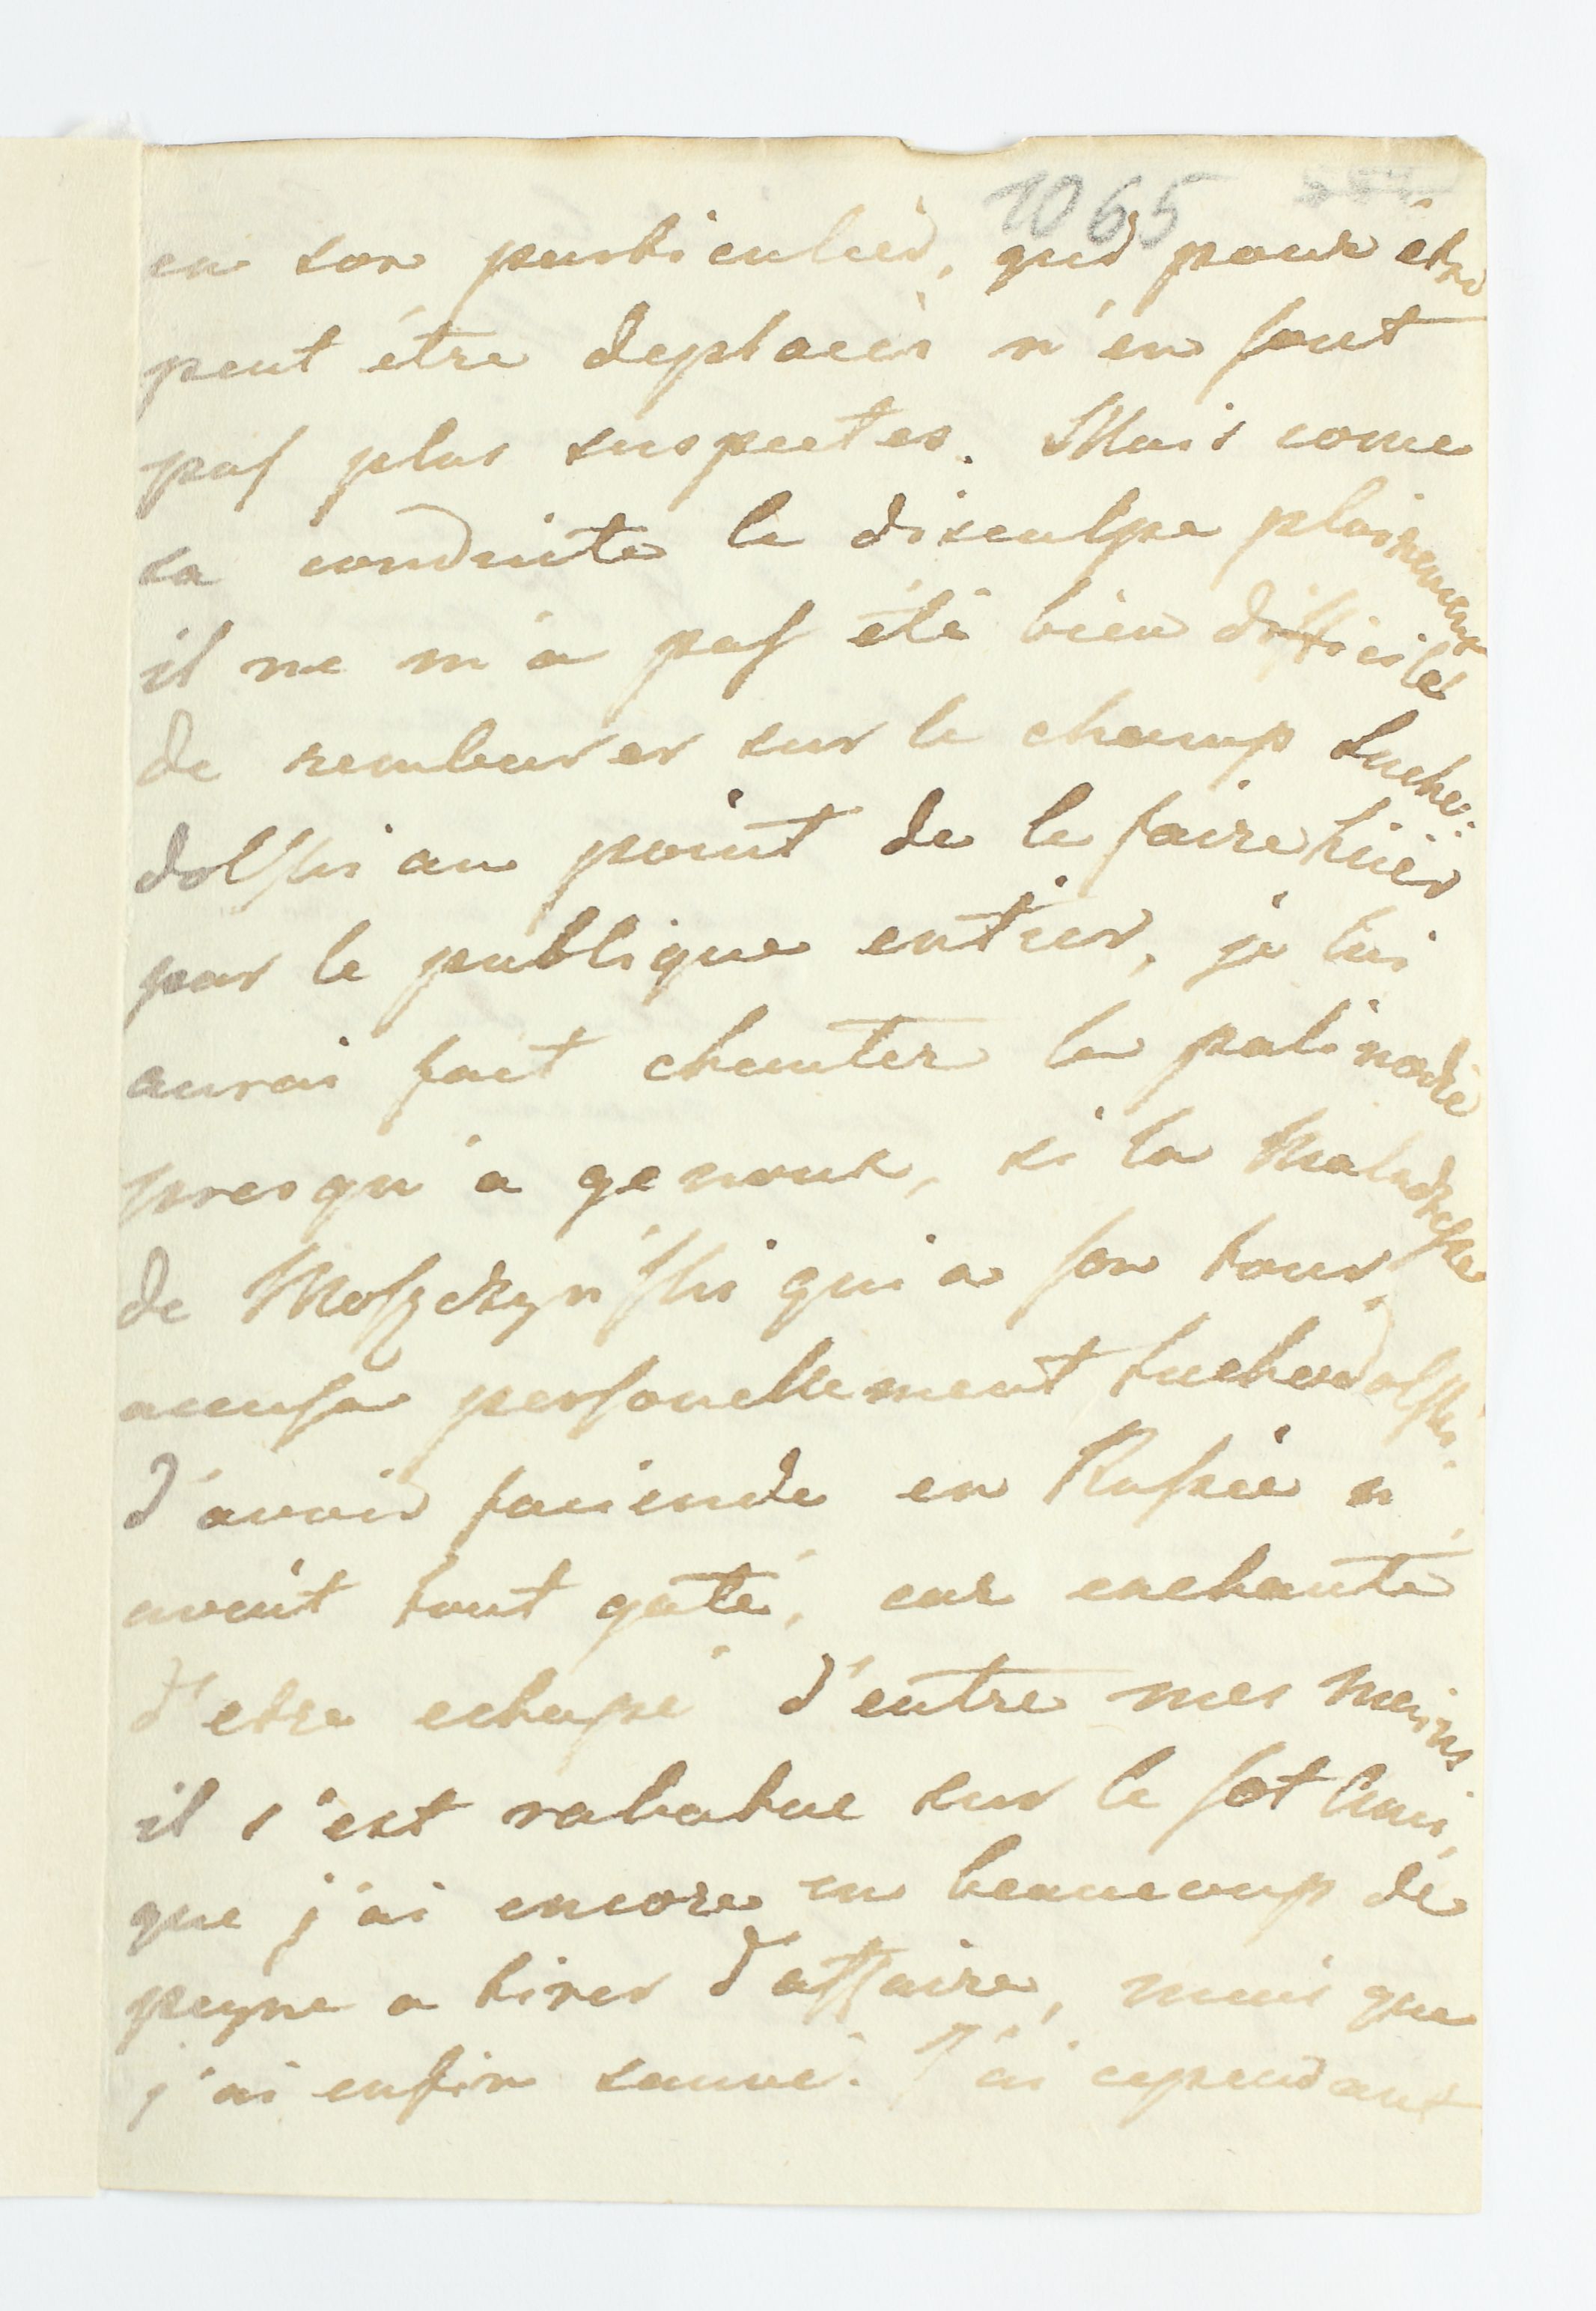 1065
en son particulier, qui pour être
peut être deplacés n'en sont
pas plus suspectes. Mais come
sa conduite le disculpe plainement
il ne m'a pas été bien difficile
de remburer sur le champ Suche:
dolski au point de le faire huer
par le publique entier, je lui
aurai fait chanter la palinodie
presqu'a genoux, si la Maladresse
de Moszczynski qui a son tour,
accusa personellement Suchodolski
d'avoir faciende en Russie n'
avoit tout gaté, car enchanté
d'etre echapé d'entre mes mains
il s'est rabatue sur le sot Ami,
que j'ai encore eu beaucoup de
peyne a tirer d'affaire, mais que
j'ai enfin sauvé. J'ai cependant